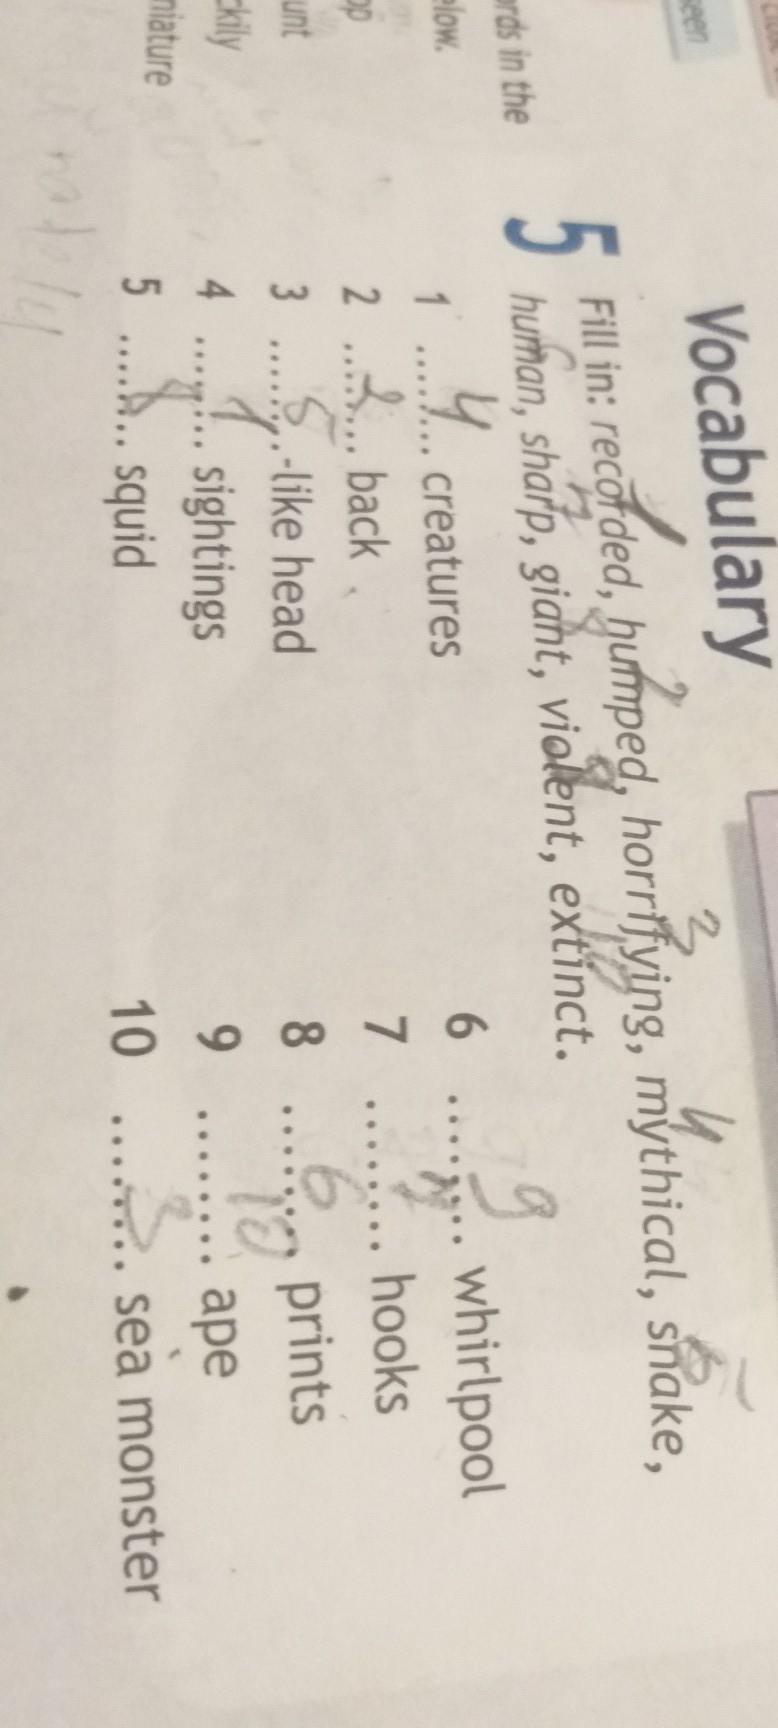 seen
ords in the
elow.
op
unt
ckily
niature
Vocabulary
5 Fill in: recorded, humped, horrifying, mythical, snake,
human, sharp, giant, violent, extinct.
1 2 3 4 5
6 7 8 9 10
1 ...4... creatures
2 ...2... back
3 ...5...-like head
4 ...1... sightings
5 ...8... squid
6 ...9... whirlpool
7 ...7... hooks
8 ...6... prints
9 ...10... ape
10 ...3... sea monster